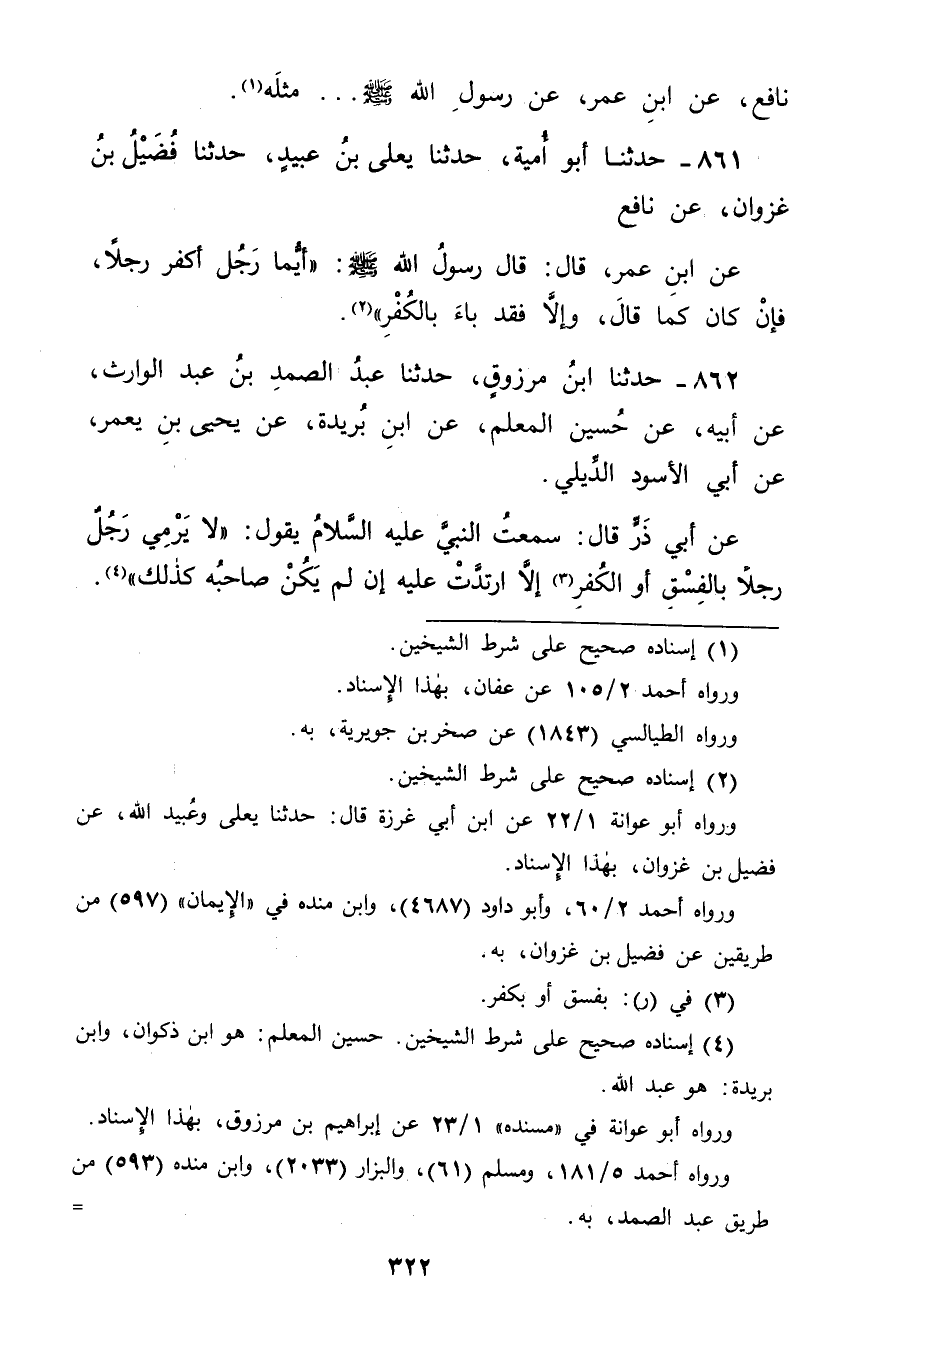 نافع، عن ابنِ عمر، عن رسولِ الله ﷺ... مثلَه(١).
٨٦١ـ حدثنا أبو أُمية، حدثنا يعلى بنُ عبيدٍ، حدثنا فُضَيْلُ بنُ
غزوان، عن نافع
عن ابنِ عمر، قال: قال رسولُ الله ﷺ: «أيُّما رَجُل أكفر رجلًا،
فإنْ كان كما قالَ، وإلَّا فقد باءَ بالكُفْرِ»(٢).
٨٦٢ـ حدثنا ابنُ مرزوقٍ، حدثنا عبدُ الصمدِ بنُ عبد الوارث،
عن أبيه، عن حُسين المعلم، عن ابنِ بُريدة، عن يحيى بنِ يعمر،
عن أبي الأسود الدِّيلي.
عن أبي ذَرٍّ قال: سمعتُ النبيَّ عليه السَّلامُ يقول: «لا يَرْمِي رَجُلٌ
رجلًا بالفِسْقِ أو الكُفرِ(٣) إلَّا ارتدَّتْ عليه إن لم يَكُنْ صاحبُه كذلك»(٤).
(١) إسناده صحيح على شرط الشيخين.
ورواه أحمد ١٠٥/٢ عن عفان، بهذا الإسناد.
ورواه الطيالسي (١٨٤٣) عن صخر بن جويرية، به.
(٢) إسناده صحيح على شرط الشيخين.
ورواه أبو عوانة ٢٢/١ عن ابن أبي غرزة قال: حدثنا يعلى وعُبيد الله، عن
فضيل بن غزوان، بهذا الإسناد.
ورواه أحمد ٦٠/٢، وأبو داود (٤٦٨٧)، وابن منده في «الإيمان» (٥٩٧) من
طريقين عن فضيل بن غزوان، به.
(٣) في (ر): بفسق أو بكفر.
(٤) إسناده صحيح على شرط الشيخين. حسين المعلم: هو ابن ذكوان، وابن
بريدة: هو عبد الله.
ورواه أبو عوانة في «مسنده» ٢٣/١ عن إبراهيم بن مرزوق، بهذا الإسناد.
ورواه أحمد ١٨١/٥، ومسلم (٦١)، والبزار (٢٠٣٣)، وابن منده (٥٩٣) من
طريق عبد الصمد، به. =
٣٢٢